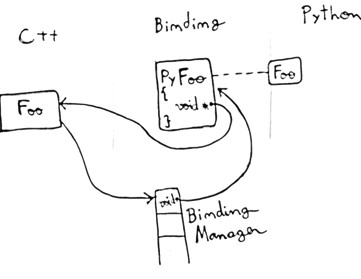 C++
Binding
Python
PyFoo
{
void *
}
Foo
Foo
void*
Binding
Manager